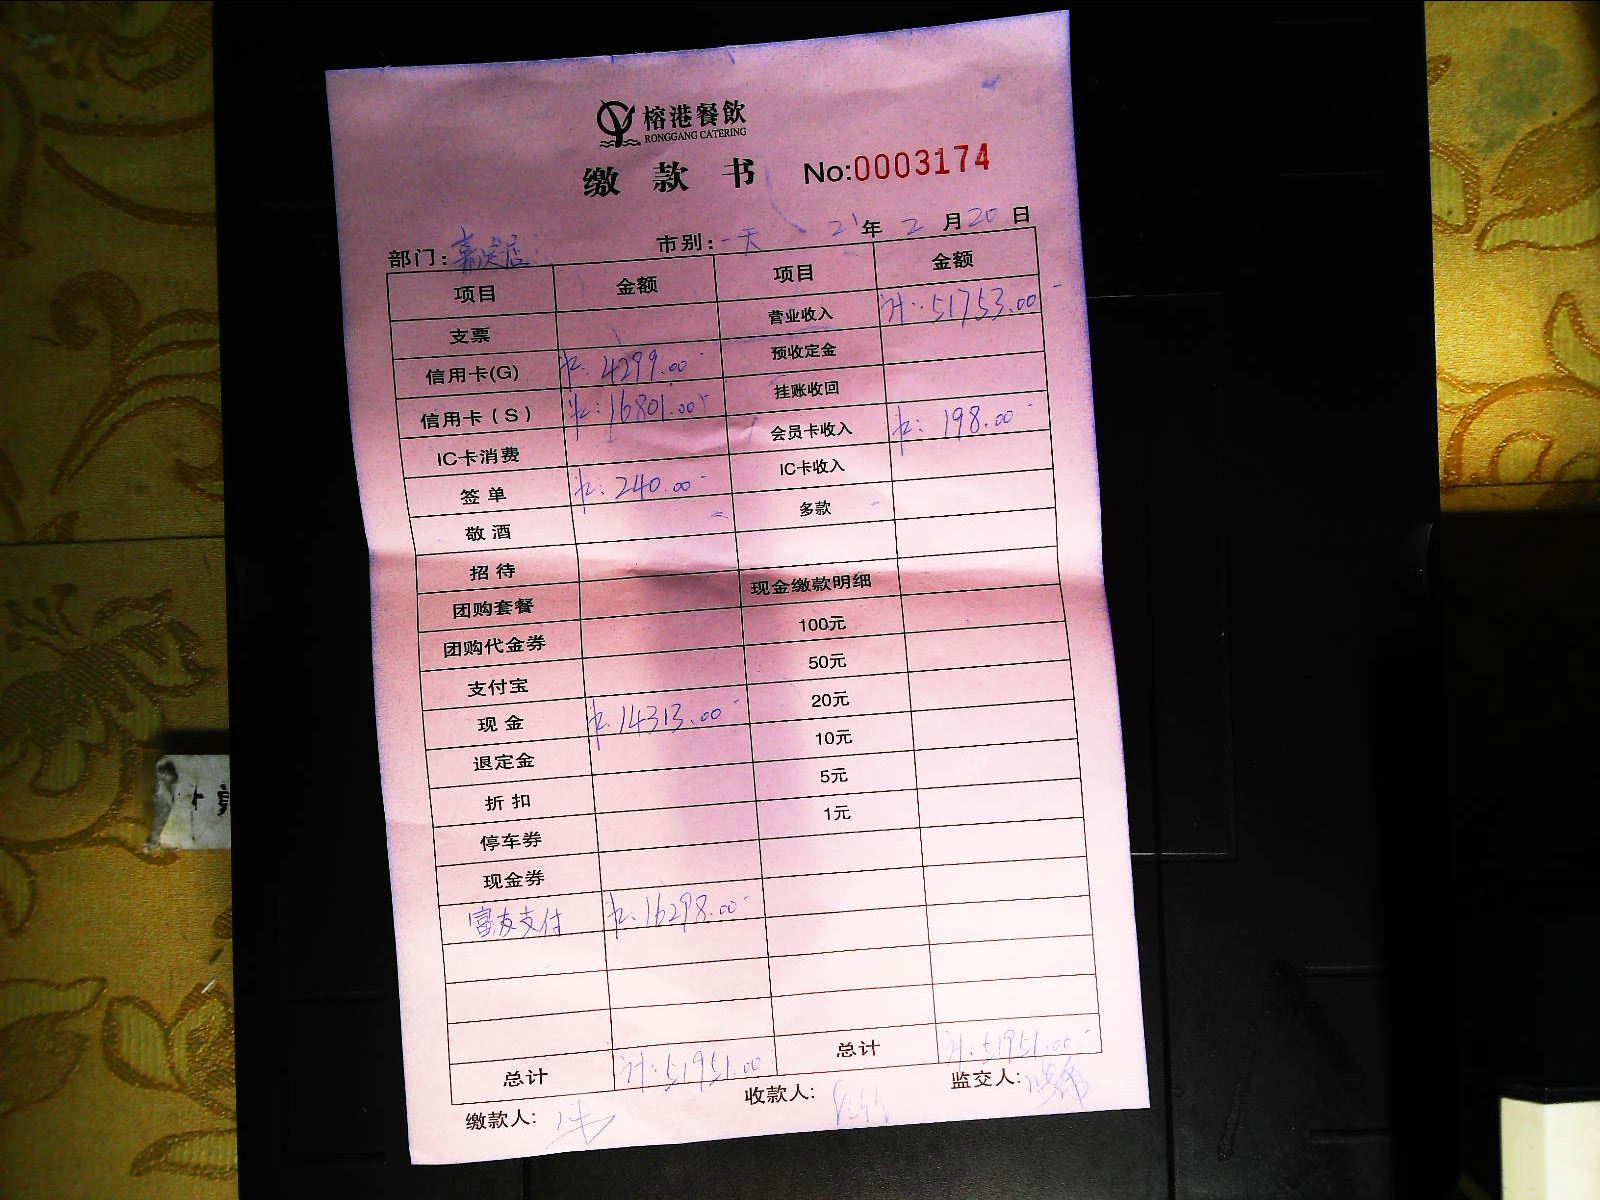 榕港餐飲
RONGGANG CATERING
缴款书 No:0003174
部门: 嘉定店 市别: 一天 21年2月20日
项目 金额 项目 金额
支票 营业收入 计: 51753.00
信用卡(G) 卡: 4299.00 预收定金
信用卡(S) 卡: 16801.00 挂账收回
IC卡消费 会员卡收入 卡: 198.00
签单 卡: 240.00 IC卡收入
敬酒 多款
招待
团购套餐 现金缴款明细
团购代金券 100元
支付宝 50元
现金 卡: 14313.00 20元
退定金 10元
折扣 5元
停车券 1元
现金券
富友支付 卡: 16298.00
总计 计: 51951.00 总计 计: 51951.00
缴款人: 收款人: 监交人: